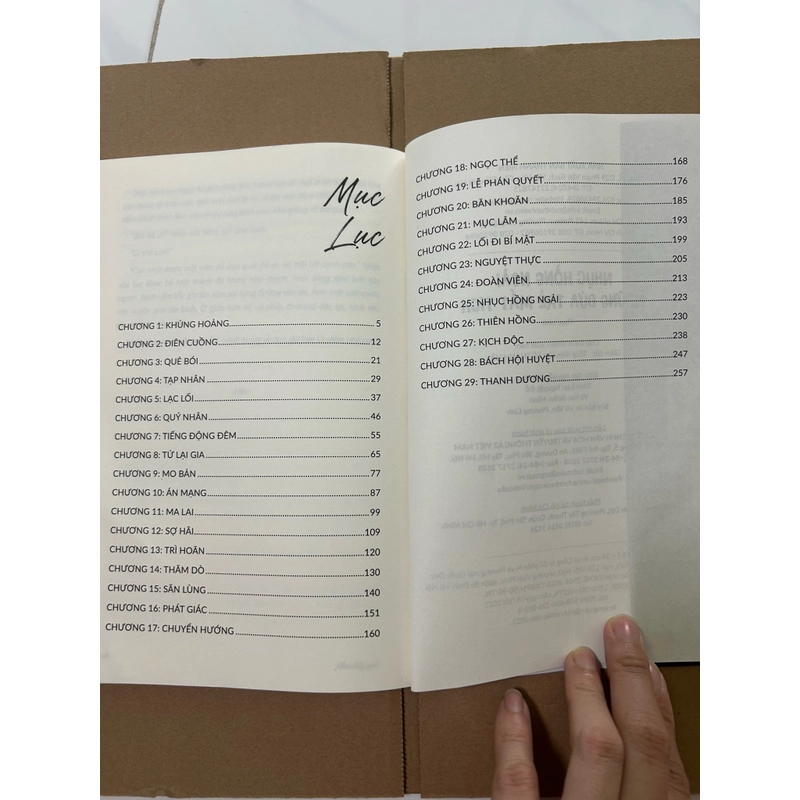 Mục
Lục
CHƯƠNG 1: KHỦNG HOẢNG.....5
CHƯƠNG 2: ĐIÊN CUỒNG.....12
CHƯƠNG 3: QUÊ BÓI.....21
CHƯƠNG 4: TẠP NHÂN.....29
CHƯƠNG 5: LẠC LỐI.....37
CHƯƠNG 6: QUÝ NHÂN.....46
CHƯƠNG 7: TIẾNG ĐỘNG ĐÊM.....55
CHƯƠNG 8: TỬ LẠI GIA.....65
CHƯƠNG 9: MO BẢN.....77
CHƯƠNG 10: ÁN MẠNG.....87
CHƯƠNG 11: MA LAI.....99
CHƯƠNG 12: SỢ HÃI.....109
CHƯƠNG 13: TRÌ HOÃN.....120
CHƯƠNG 14: THĂM DÒ.....130
CHƯƠNG 15: SĂN LÙNG.....140
CHƯƠNG 16: PHÁT GIÁC.....151
CHƯƠNG 17: CHUYỂN HƯỚNG.....160
CHƯƠNG 18: NGỌC THỂ.....168
CHƯƠNG 19: LỄ PHÁN QUYẾT.....176
CHƯƠNG 20: BĂN KHOĂN.....185
CHƯƠNG 21: MỤC LÂM.....193
CHƯƠNG 22: LỐI ĐI BÍ MẬT.....199
CHƯƠNG 23: NGUYỆT THỰC.....205
CHƯƠNG 24: ĐOÀN VIÊN.....213
CHƯƠNG 25: NHỤC HỒNG NGẢI.....223
CHƯƠNG 26: THIÊN HỒNG.....230
CHƯƠNG 27: KỊCH ĐỘC.....238
CHƯƠNG 28: BÁCH HỘI HUYỆT.....247
CHƯƠNG 29: THANH DƯƠNG.....257